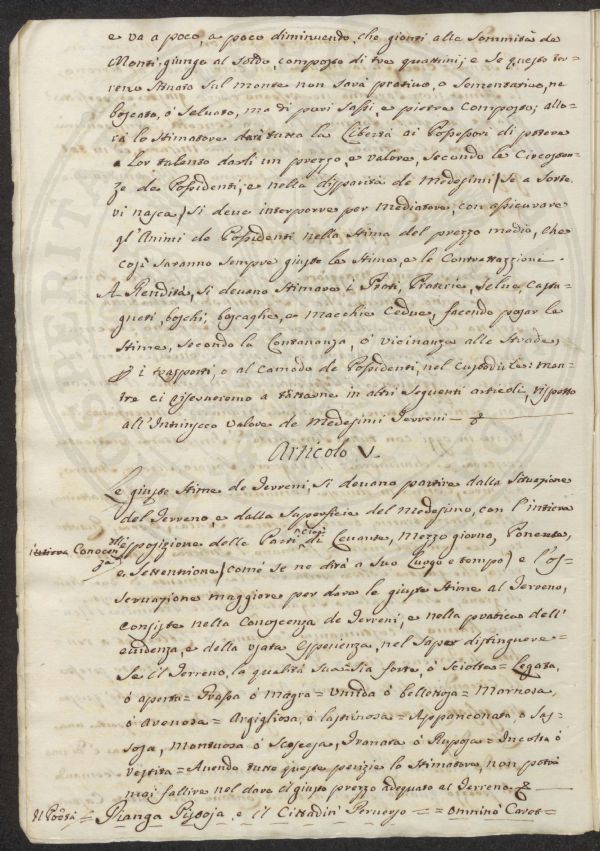 e va a poco, a poco diminuendo, che gionti alle Sommità de
Monti, giunge al Soldo composto di tre quattrini; e se questo ter-
reno situato sul monte non sarà prativo, o Sementativo, ne
boscato, ó Seluato, ma di puri Sassi, e pietre composto; allo-
rà lo Stimatore darà tutta la Libertà ai Possessori di potere
a Lor talento darli un prezzo, e valore, secondo le Circostan-
ze de Possidenti, e nella disparità de Medesimi (Se a Sorte
vi nasca) Si deve interporre per Mediatore, con assicurare
gl'Animi de Possidenti nella Stima del prezzo medio, che
così saranno sempre giuste le Stime, e le Contrattazzione.
A Rendita, si devano Stimare i Prati, Praterie, Selve, Casta-
gneti, boschi, boscaglie, e Macchie Cedue, facendo posar le
Stime, secondo la Lontananza, ó vicinanza alle Strade,
i trasporti, o al Comodo de Possidenti, nel Custodirle: men-
tre ci riserveremo a trattarne in altri seguenti articoli, rispetto
all'Intrinseco Valore de Medesimi Terreni
Articolo V.
Le giuste Stime de Terreni, Si devano partire dalla Situazione
del Terreno, e dalla Superficie del Medesimo, con l'intiera
intiera Conoscen
za
esposizione delle Parti Cioè di Levante, Mezzo giorno, Ponente,
e Settentrione (come se ne dirà a Suo Luogo e tempo) e l'os-
servazione maggiore per dare le giuste Stime al Terreno,
consiste nella Conoscenza de Terreni, e nella pratica dell'
evidenza, e della usata Esperienza, nel saper distinguere =
Se il Terreno, la qualità Sua Sia forte, ó Sciolta = Legata,
ó aperta = Grassa ó Magra = Umida ó belletosa = Marnosa
ó Arenosa = Argigliosa, ó lastrinosa = Appanconata, o Sas-
sosa, Montuosa ó Scoscesa, Franata ó Riposta = Incolta ó
vestita = Avendo tutte queste perizie lo Stimatore, non potrà
mai fallire nel dare il giusto prezzo adeguato al Terreno.
Il Poeta = Pianga Pistoja, e il Cittadin Perverso = = omnino Caret =